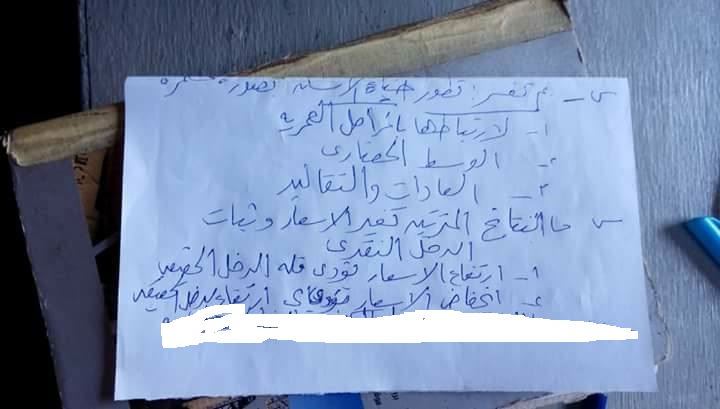 س - بم تفسر : تطور حياة الانسان بصورة مستمرة
١- لارتباطها بالمراحل العمريه
٢- الوسط الحضارى
٣- العادات والتقاليد
س ما النتائج المترتبه تغير الاسعار وثبات
الدخل النقدى
١- ارتفاع الاسعار تؤدى قله الدخل الحقيقى
٢- انخفاض الاسعار تؤدي ارتفاع الدخل الحقيقى